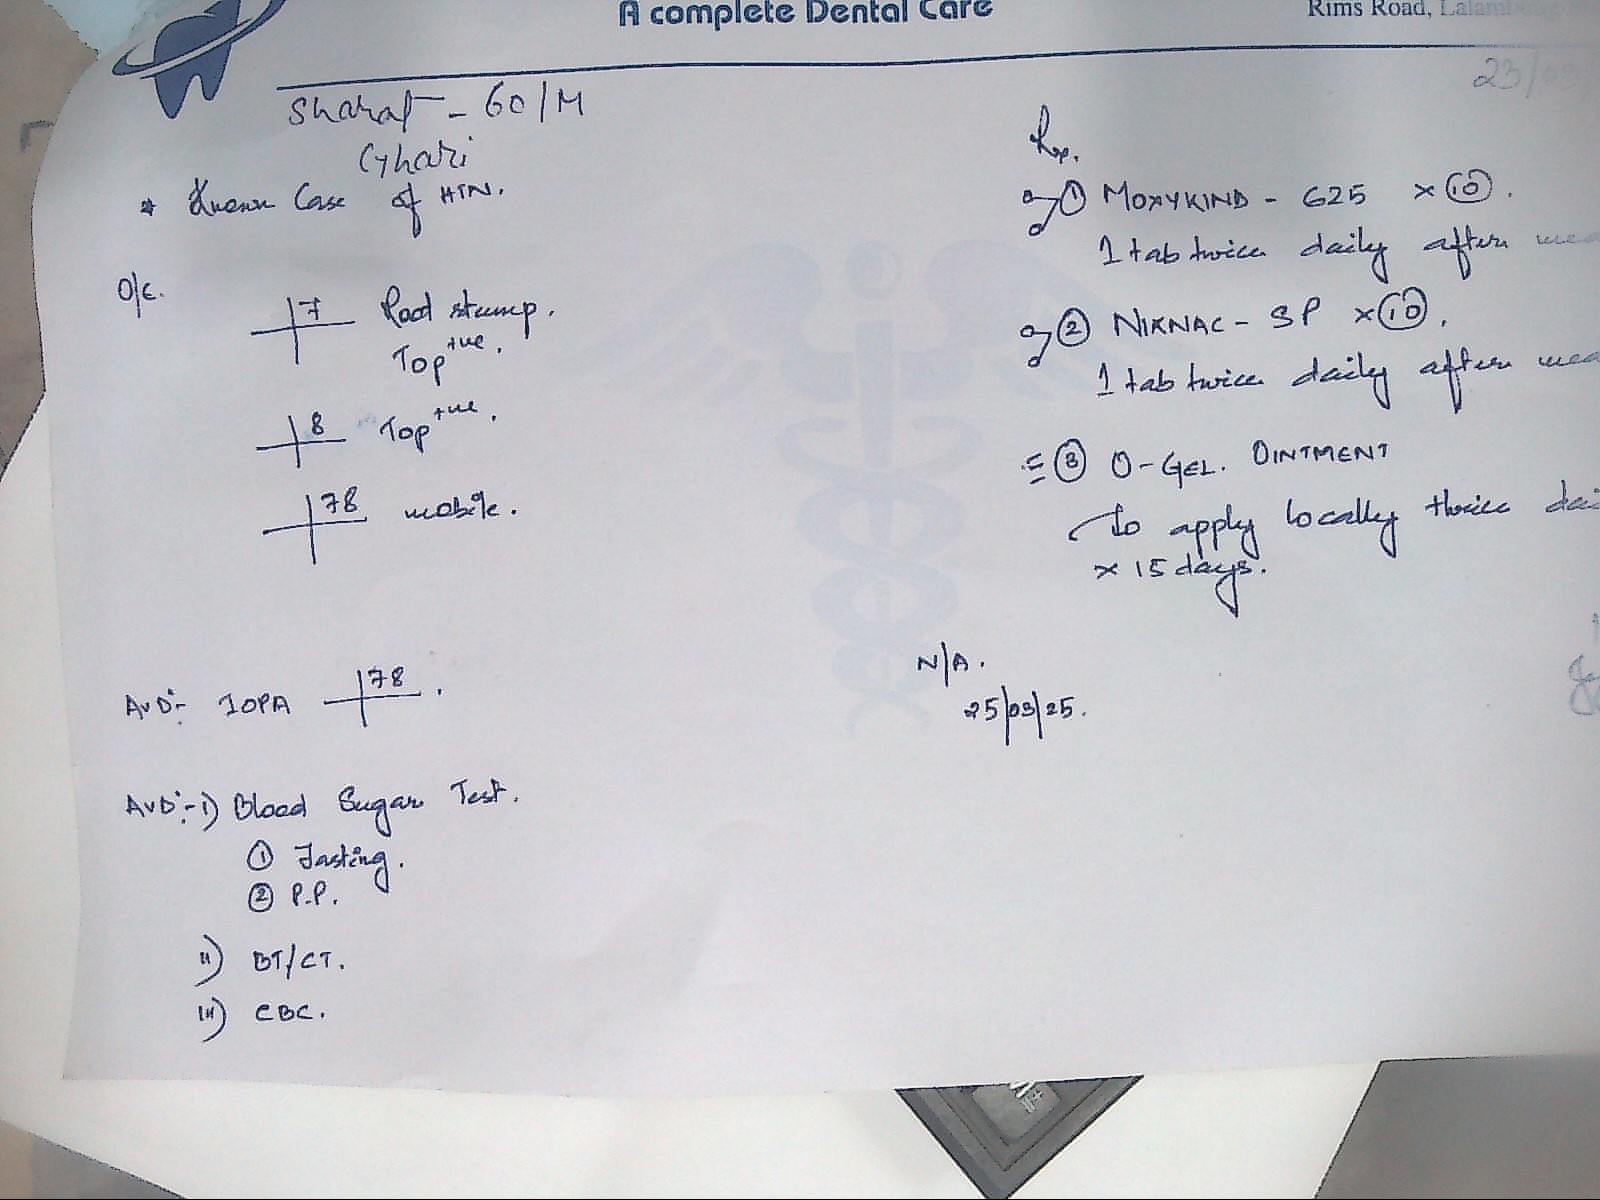 A complete Dental Care
Rims Road, Lalambung
23/03/
Sharat - 60/M
Ghari
* Known Case of HTN.
O/E.
7 Root stump.
Top +ve.
8 Top +ve.
78 mobile.
AvD:- IOPA 78.
AvD:- i) Blood Sugar Test.
① Fasting.
② P.P.
ii) BT/CT.
iii) CBC.
Rx.
① MOXYKIND - 625 x ⑩.
1 tab twice daily after mea
② NIKNAC - SP x ⑩.
1 tab twice daily after mea
③ O-GEL. OINTMENT
To apply locally thrice dai
x 15 days.
N/A.
25/03/25.